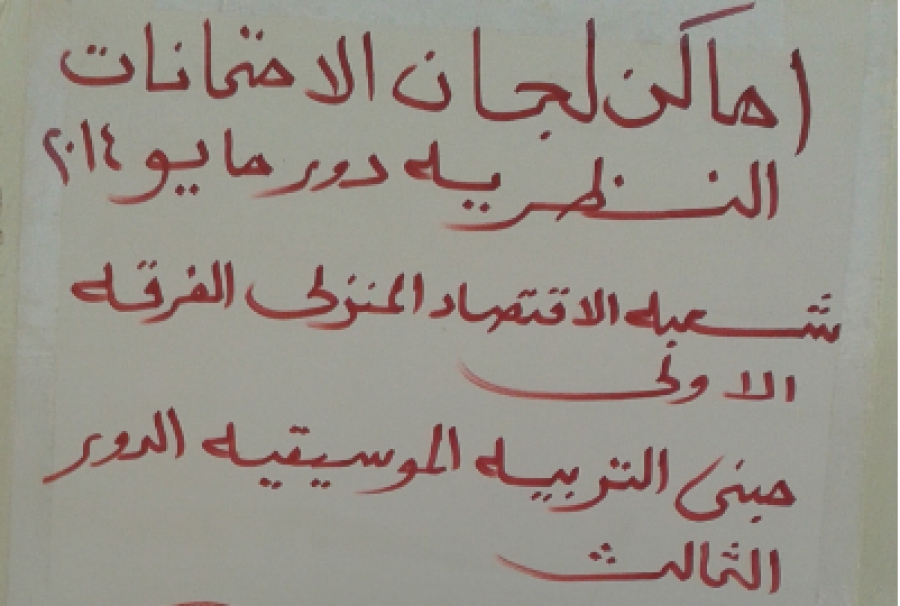 اماكن لجان الامتحانات
النظريه دور مايو ٢٠١٤
شعبه الاقتصاد المنزلى الفرقه
الاولى
مبنى التربيه الموسيقيه الدور
الثالث